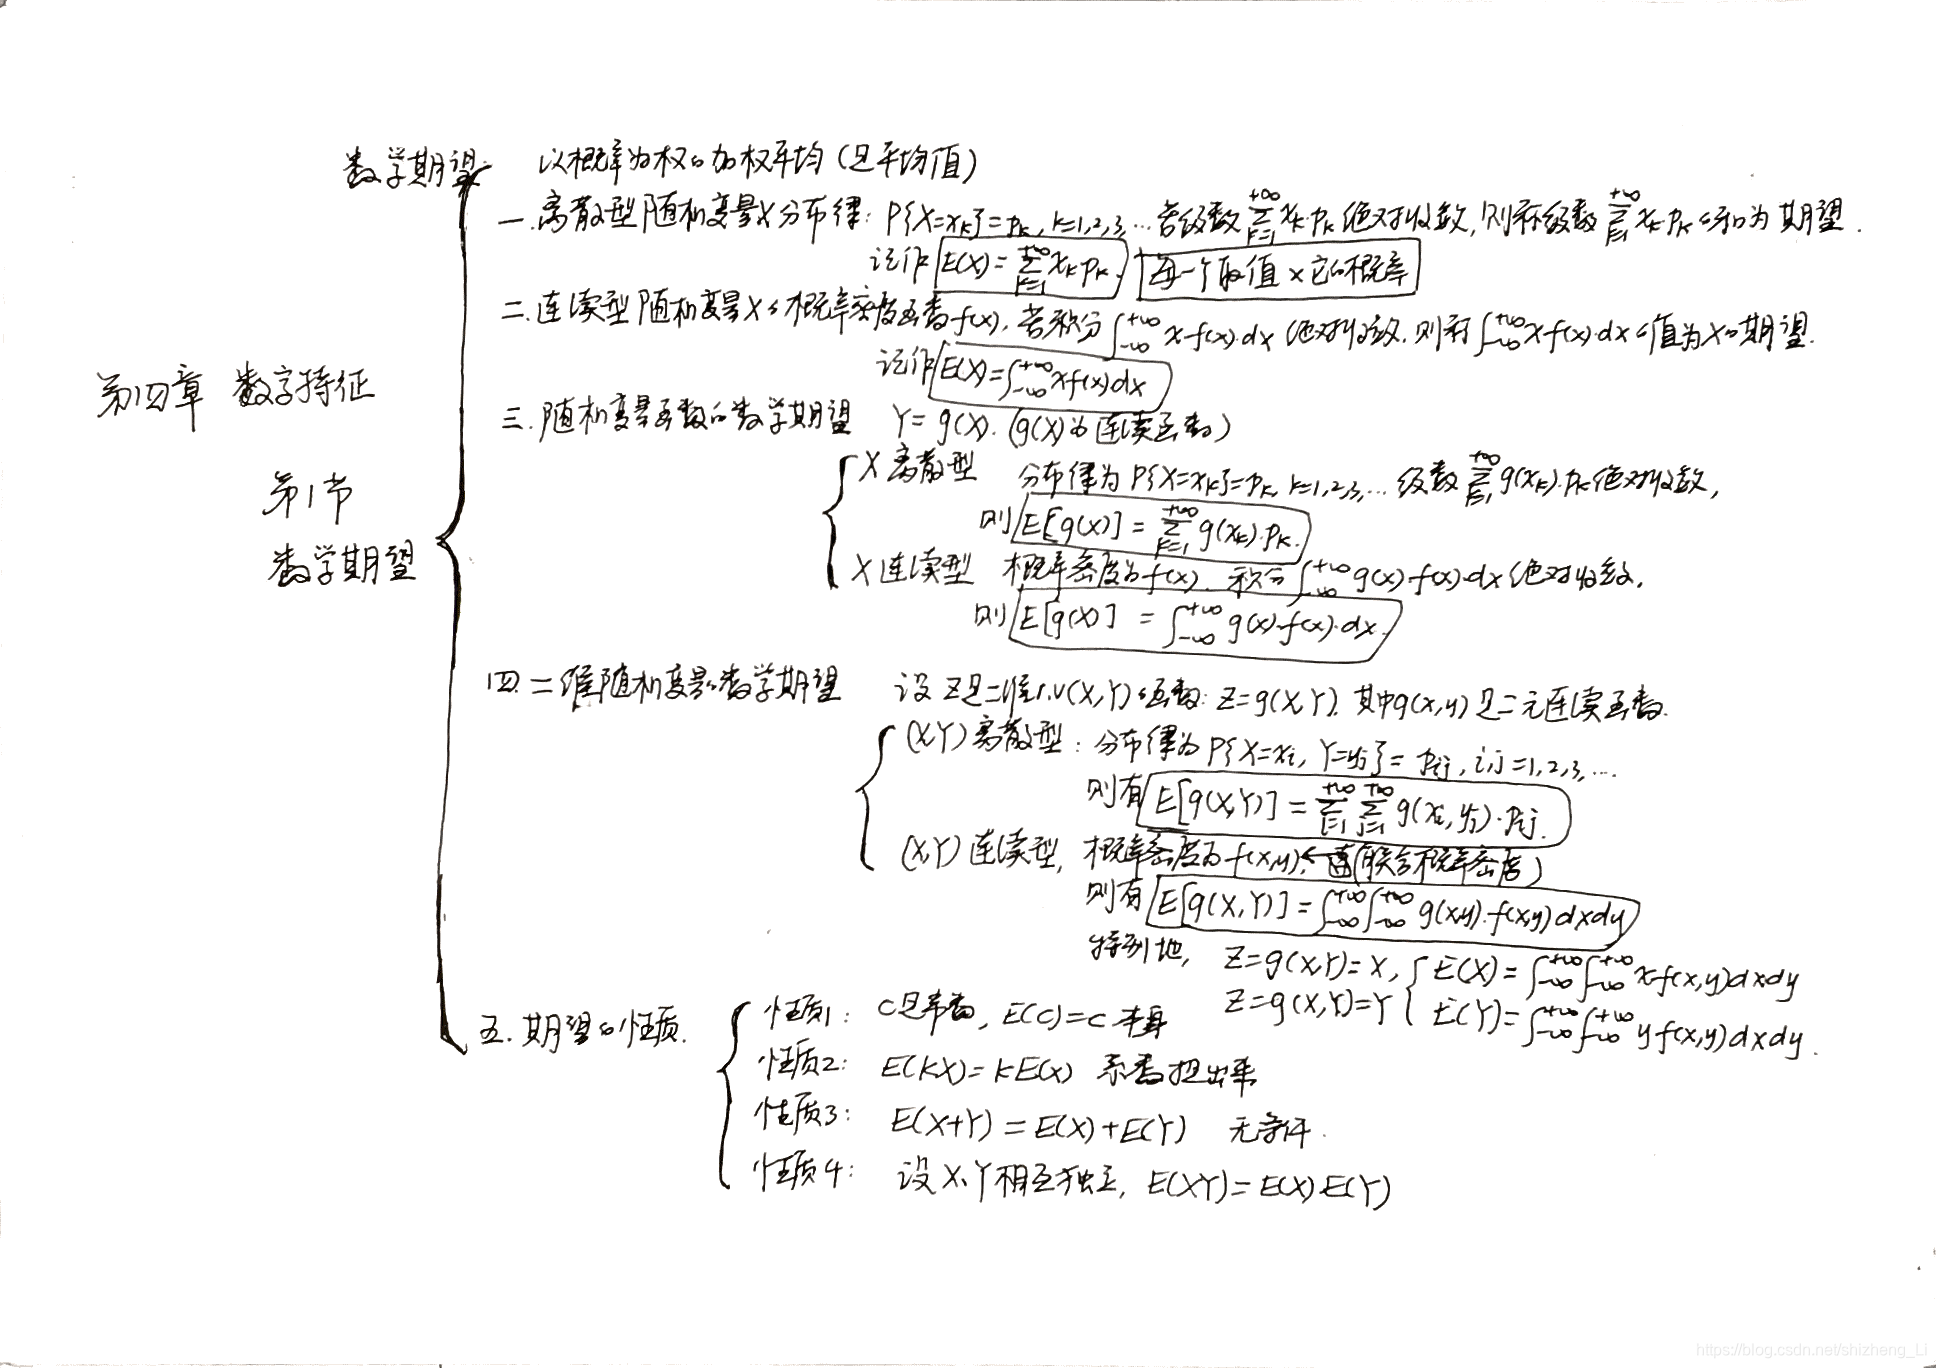 数学期望 以概率为权的加权平均(是平均值)
一.离散型随机变量X分布律: P{X=xₖ}=pₖ, k=1,2,3,… 若级数∑_{k=1}^{+∞} xₖpₖ绝对收敛,则称级数∑_{k=1}^{+∞} xₖpₖ的和为期望.
记作 E(X)=∑_{k=1}^{+∞} xₖpₖ. 每一个取值×它的概率
二.连续型随机变量X的概率密度函数f(x),若积分∫_{-∞}^{+∞} x·f(x)·dx绝对收敛.则称∫_{-∞}^{+∞} x·f(x)·dx的值为X的期望.
记作 E(X)=∫_{-∞}^{+∞} xf(x)dx
第四章 数字特征
三.随机变量函数的数学期望 Y=g(X).(g(X)为连续函数)
X离散型 分布律为P{X=xₖ}=pₖ, k=1,2,3,… 级数∑_{k=1}^{+∞} g(xₖ)·pₖ绝对收敛,
第1节
则 E[g(X)]=∑_{k=1}^{+∞} g(xₖ)·pₖ.
数学期望
X连续型 概率密度为f(x). 积分∫_{-∞}^{+∞} g(x)·f(x)·dx绝对收敛.
则 E[g(X)]=∫_{-∞}^{+∞} g(x)·f(x)·dx.
四.二维随机变量的数学期望 设Z是二维r.v(X,Y)的函数: Z=g(X,Y). 其中g(x,y)是二元连续函数.
(X,Y)离散型: 分布律为P{X=xᵢ, Y=yⱼ}=pᵢⱼ, i,j=1,2,3,…
则有 E[g(X,Y)]=∑_{i=1}^{+∞}∑_{j=1}^{+∞} g(xᵢ,yⱼ)·pᵢⱼ.
(X,Y)连续型, 概率密度为f(x,y).←(联合概率密度)
则有 E[g(X,Y)]=∫_{-∞}^{+∞}∫_{-∞}^{+∞} g(x,y)·f(x,y)dxdy
特别地, Z=g(X,Y)=X, E(X)=∫_{-∞}^{+∞}∫_{-∞}^{+∞} x·f(x,y)dxdy
Z=g(X,Y)=Y E(Y)=∫_{-∞}^{+∞}∫_{-∞}^{+∞} yf(x,y)dxdy.
五.期望的性质.
性质1: C是常数, E(C)=C 本身
性质2: E(kX)=kE(X) 系数提出来
性质3: E(X+Y)=E(X)+E(Y) 无条件.
性质4: 设X、Y相互独立, E(XY)=E(X)·E(Y)
https://blog.csdn.net/shizheng_Li